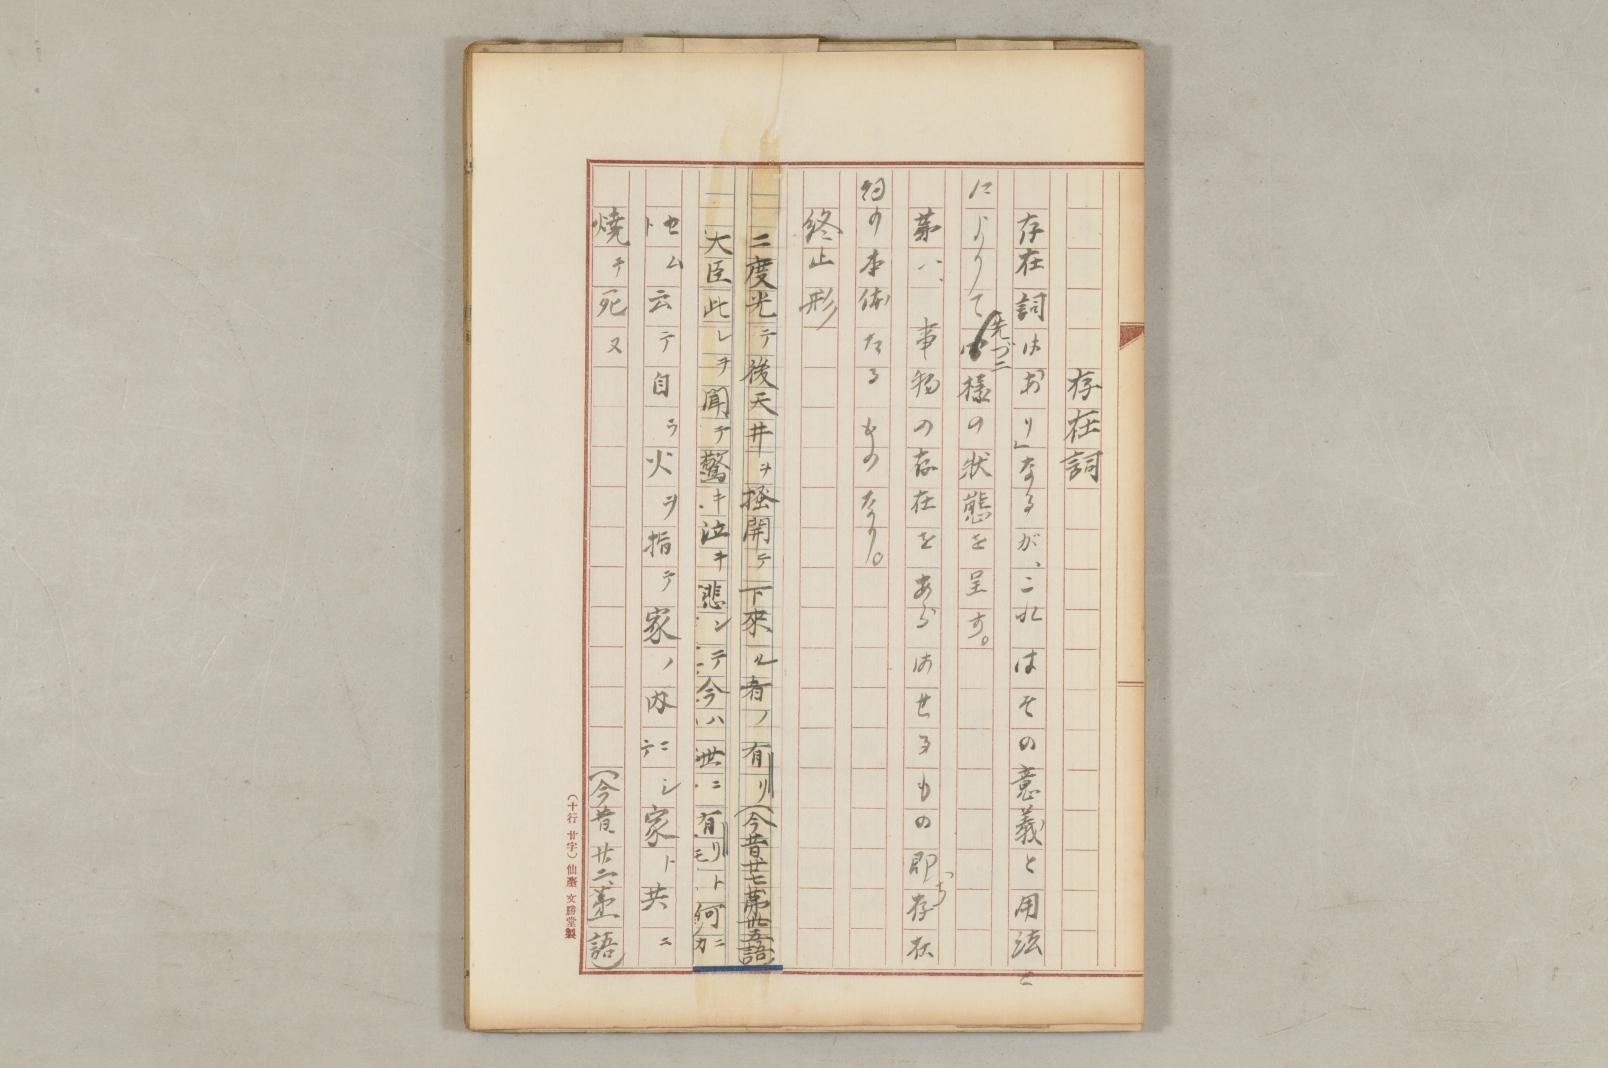 存在詞
存在詞は「あり」なるが、これはその意義と用法と
によりて先づ二様の状態を呈す。
第一、事物の存在をあらはせるもの即ち存在
詞の本体たるものなり。
終止形
二度光テ後天井ヲ掻開テ下來ル者ノ有リ(今昔廿七第廿五語)
大臣此レヲ聞テ驚キ泣キ悲ンテ今ハ世ニ有リトモ何ニカ
セムト云テ自ラ火ヲ指テ家ノ内ニシテ家ト共ニ
焼ヶ死ヌ
(今昔廿二、第一語)
(十行 廿字)仙臺 文勝堂製